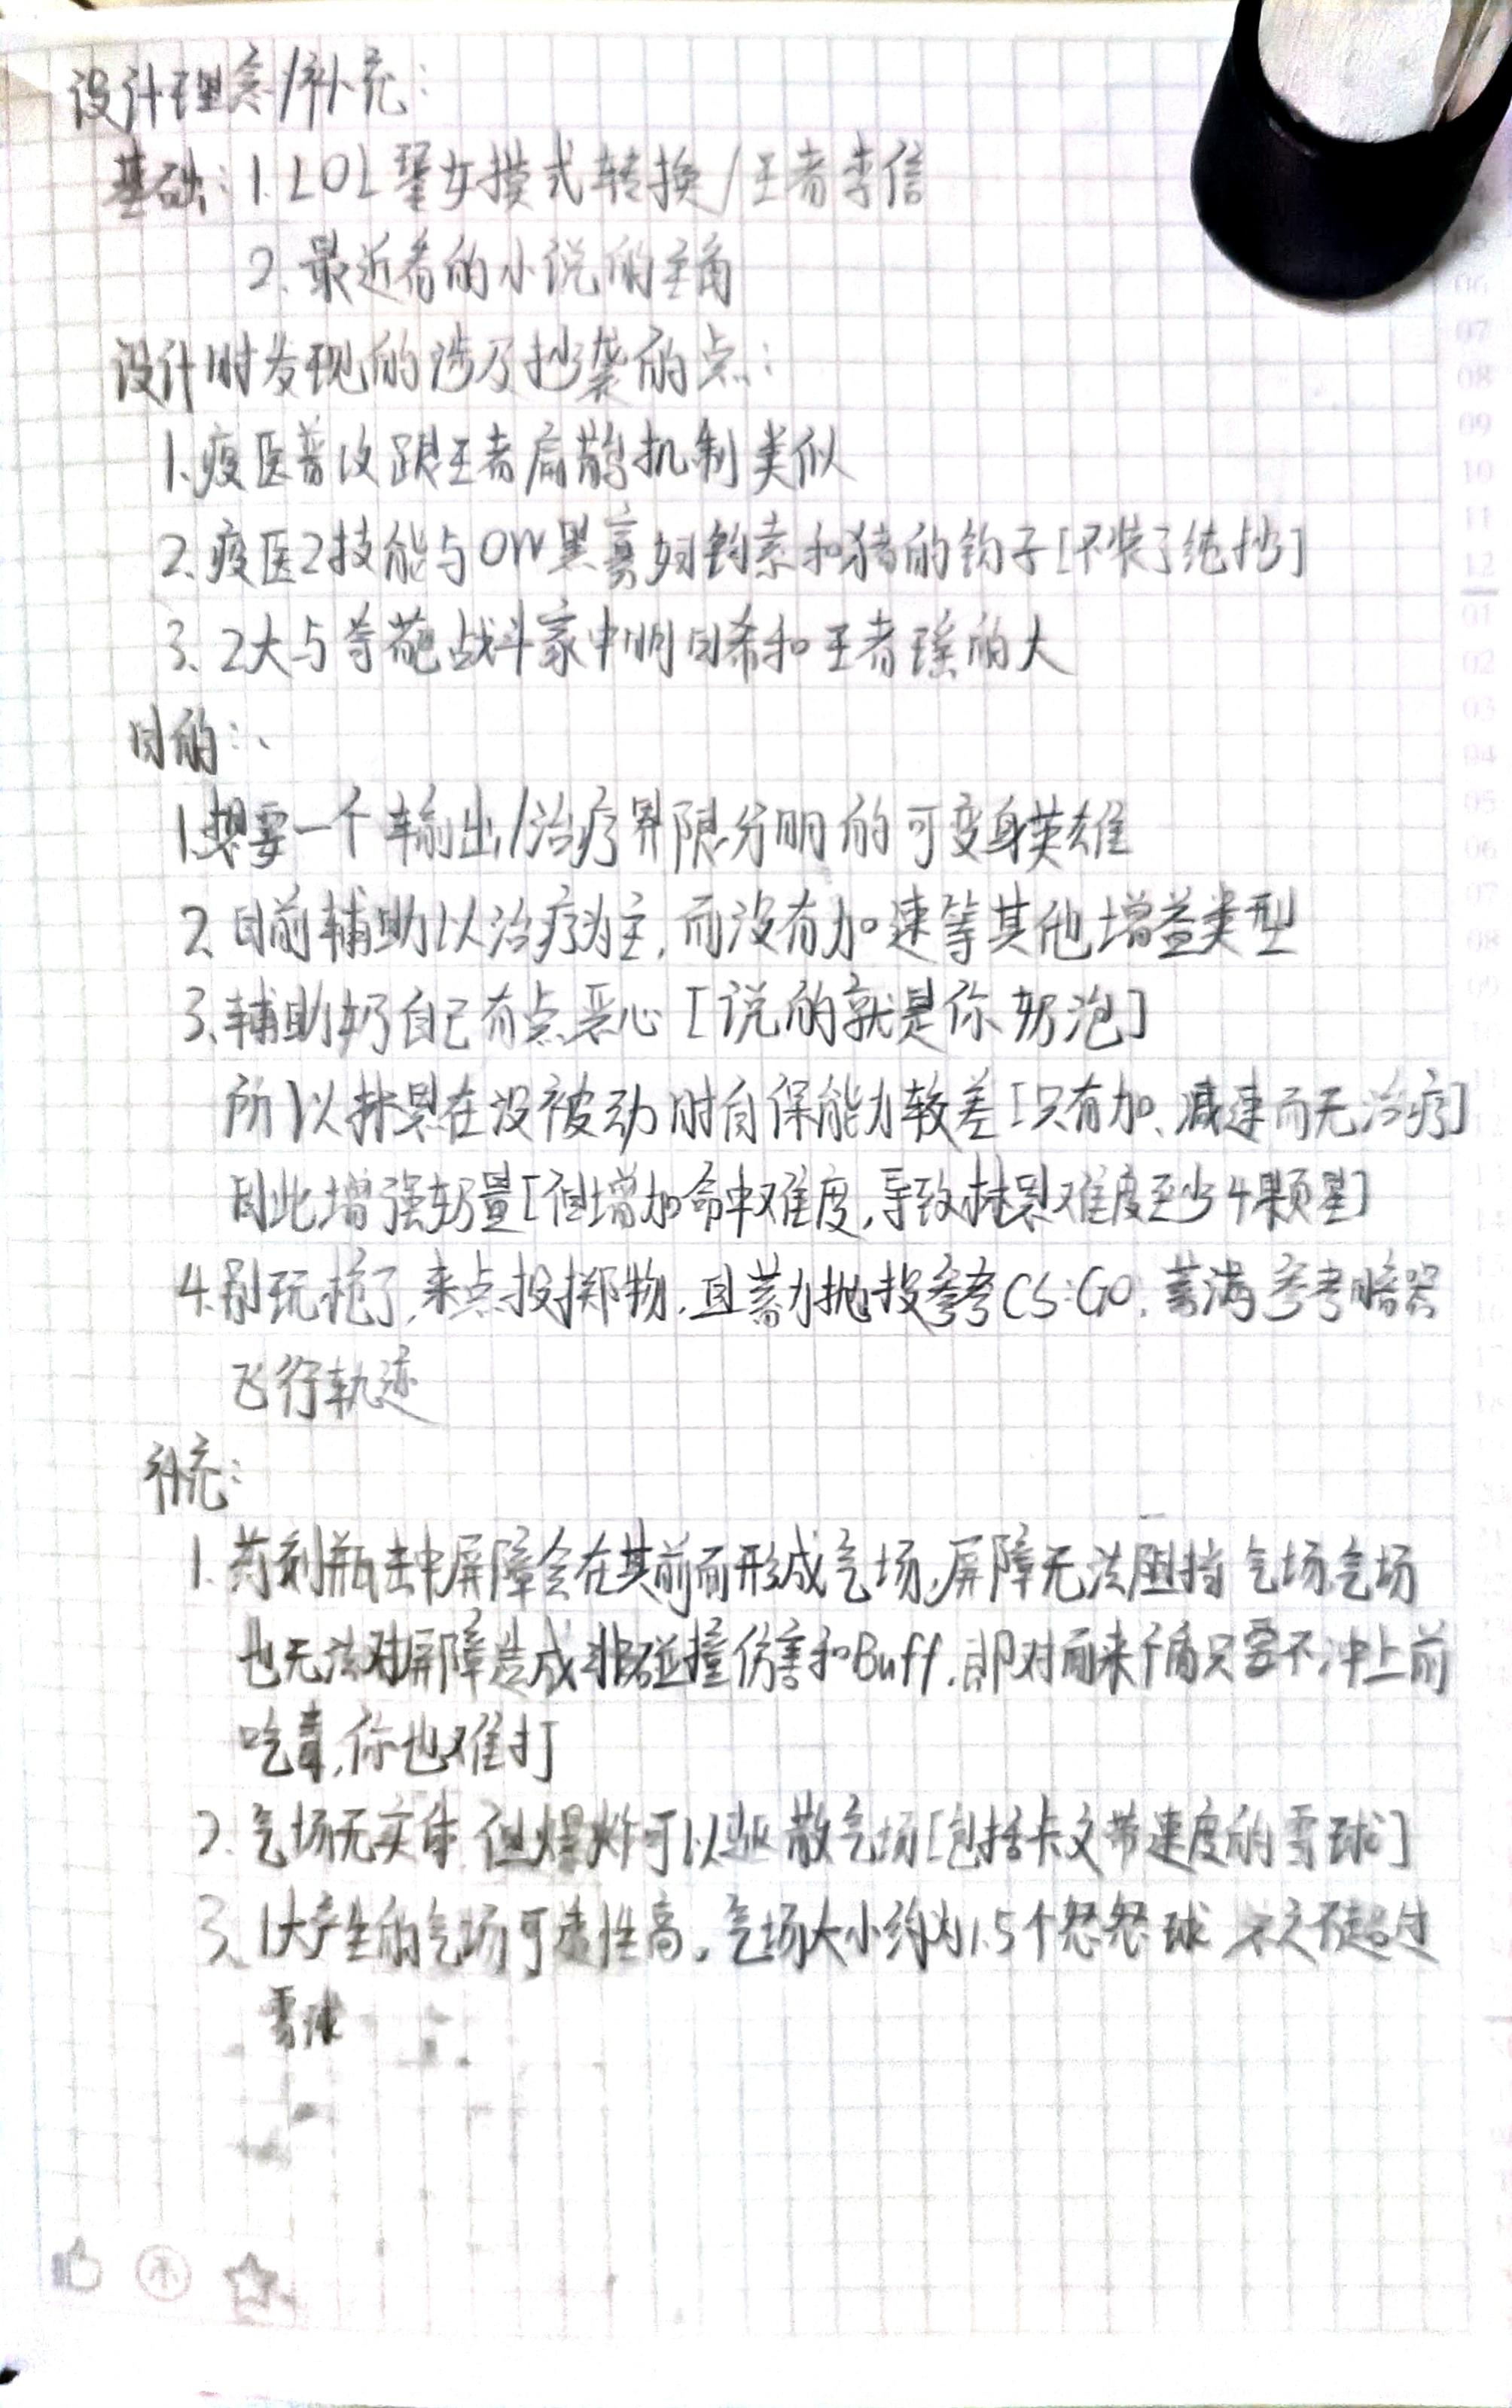 设计理念/补充:
基础: 1. LOL 翠女摸式转换/王者李信
2. 最近看的小说的主角
设计时发现的涉及抄袭的点:
1. 疫医普攻跟王者扁鹊机制类似
2. 疫医2技能与OW黑寡妇钩索和猪的钩子[不装了纯抄]
3. 2大与香葩战斗家中明日希和王者瑶的大
目的:、
1. 想要一个输出/治疗界限分明的可变身英雄
2. 目前辅助以治疗为主,而没有加速等其他增益类型
3. 辅助奶自己有点恶心[说的就是你奶泡]
所以林昊在没被动时自保能力较差[只有加、减速而无治疗]
因此增强奶量[但增加命中难度,导致林昊难度至少4颗星]
4. 别玩枪了,来点投掷物,且蓄力抛投参考CS:GO,蓄满参考暗器
飞行轨迹
补充:
1. 药剂瓶击中屏障会在其前面形成气场,屏障无法阻挡气场,气场
也无法对屏障造成非碰撞伤害和Buff,即对面来个盾只要不冲上前
吃毒,你也难打
2. 气场无实体,但爆炸可以驱散气场[包括卡文带速度的雪球]
3. 1大产生的气场可造性高,气场大小约为1.5个怒怒球 不超过
雪球